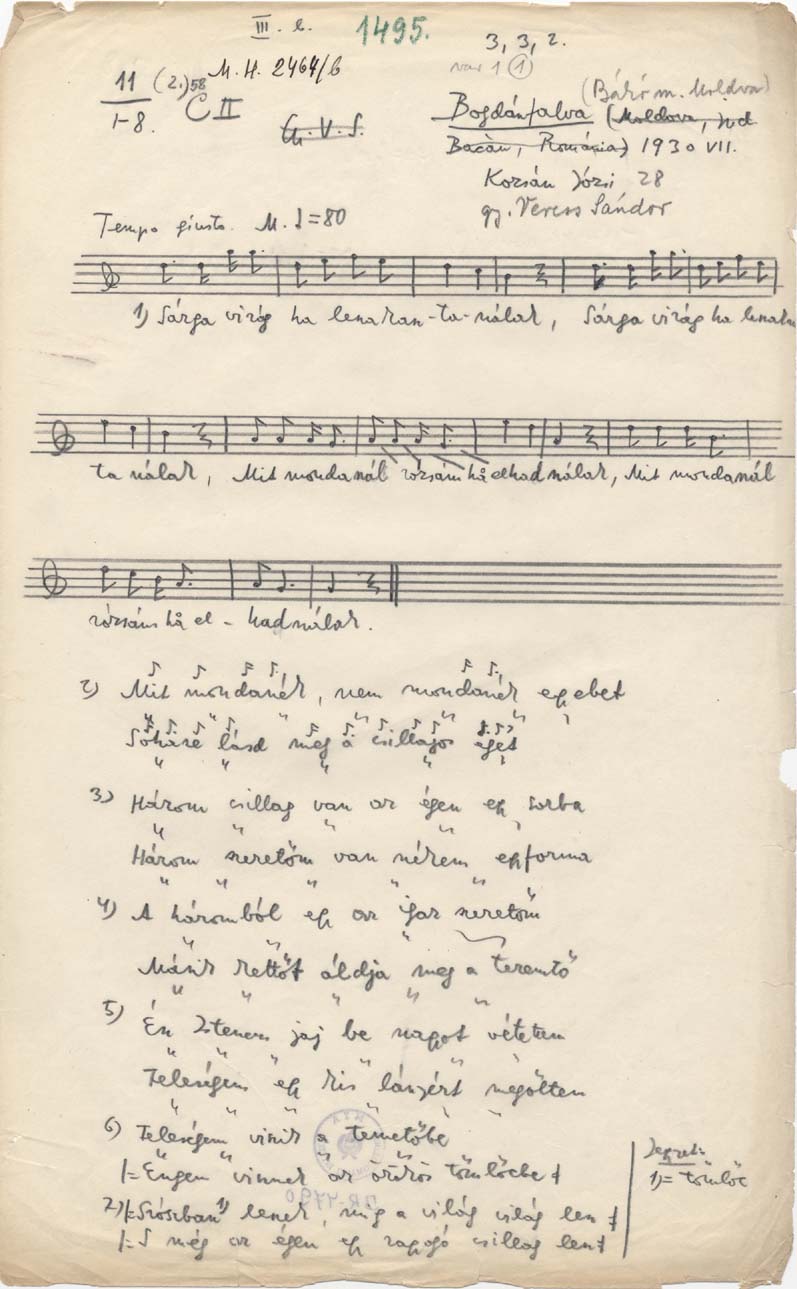 III. b.
1495.
3, 3, 2.
var 1 (1)
11 (2.) 58
1-8.
M. H. 2464/b
C II
(Bákó m. Moldva)
Bogdánfalva (Moldova, jud.
Bacău, România) 1930 VII.
Kozsán Józsi 28
gy. Veress Sándor
Tempo giusto. M. ♩=80
1) Sárga virág ha lenakan-ta-nálak, Sárga virág ha lenakan
ta nálak, Mit mondanál rózsám hå elhadnálak, Mit mondanál
rózsám hå el-hadnálak.
2) Mit mondanék, nem mondanék egebet
lásd meg a csillagos eget
3) Három csillag van az égen egy sorba
Három szeretőm van nékem egyforma
4) A háromból egy az igaz szeretőm
Másik kettőt áldja meg a teremtő
5) Én Istenem jaj be nagyot vétettem
Feleségem egy kis lányért megöltem
6) Feleségem viszik a temetőbe
|= Engem vinnek az örökös tömlöcbe =|
7) |= 1) lenek, míg a világ világ len =|
|= S még az égen egy ragyogó csillag len =|
Jegyzet:
1) = tömlöc